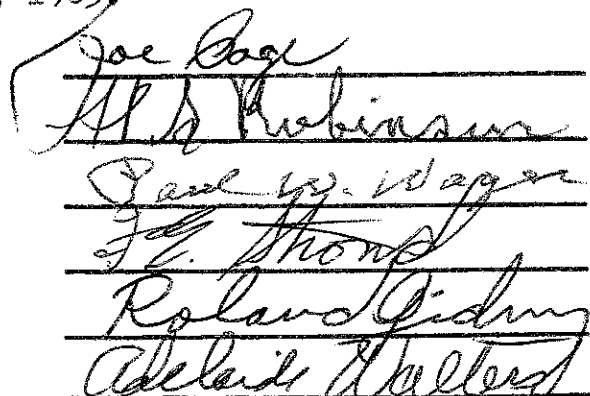 Joe Page
H. G. Robinson
Paul W. Wager
F. E. Strowd
Roland Giduz
Adelaide Walters